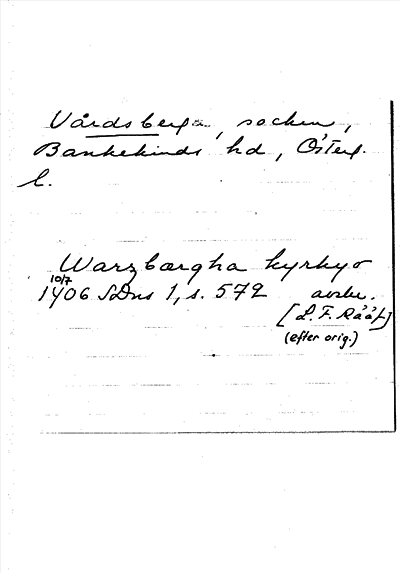 Vårdsberga, socken,
Bankekinds hd, Österg.
l.
Warzbærgha kyrkyo
10/7
1406 SDns 1, s. 572 avskr.
[L. F. Rääf]
(efter orig.)